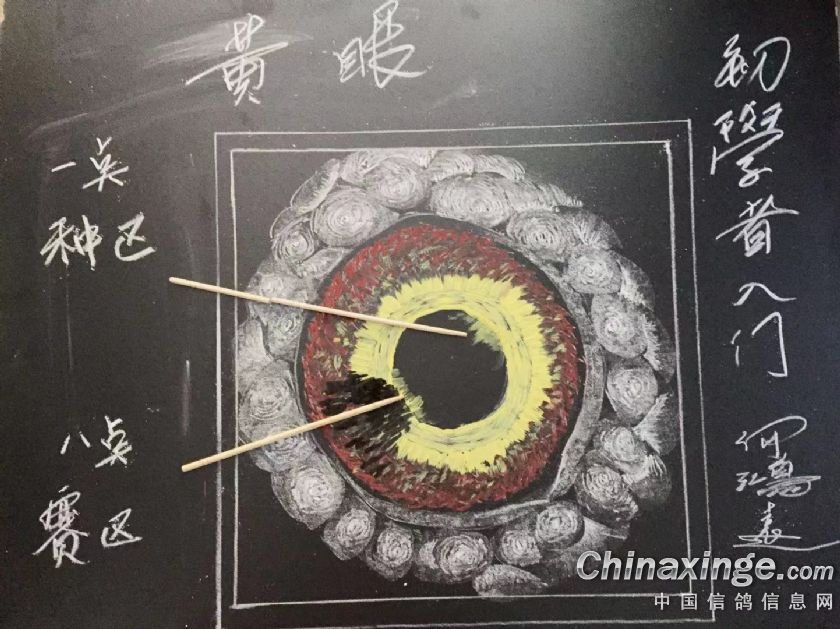 黄眼
一点
种区
八点
赛区
初學者入门
何
Chinaxinge.com
中国信鸽信息网